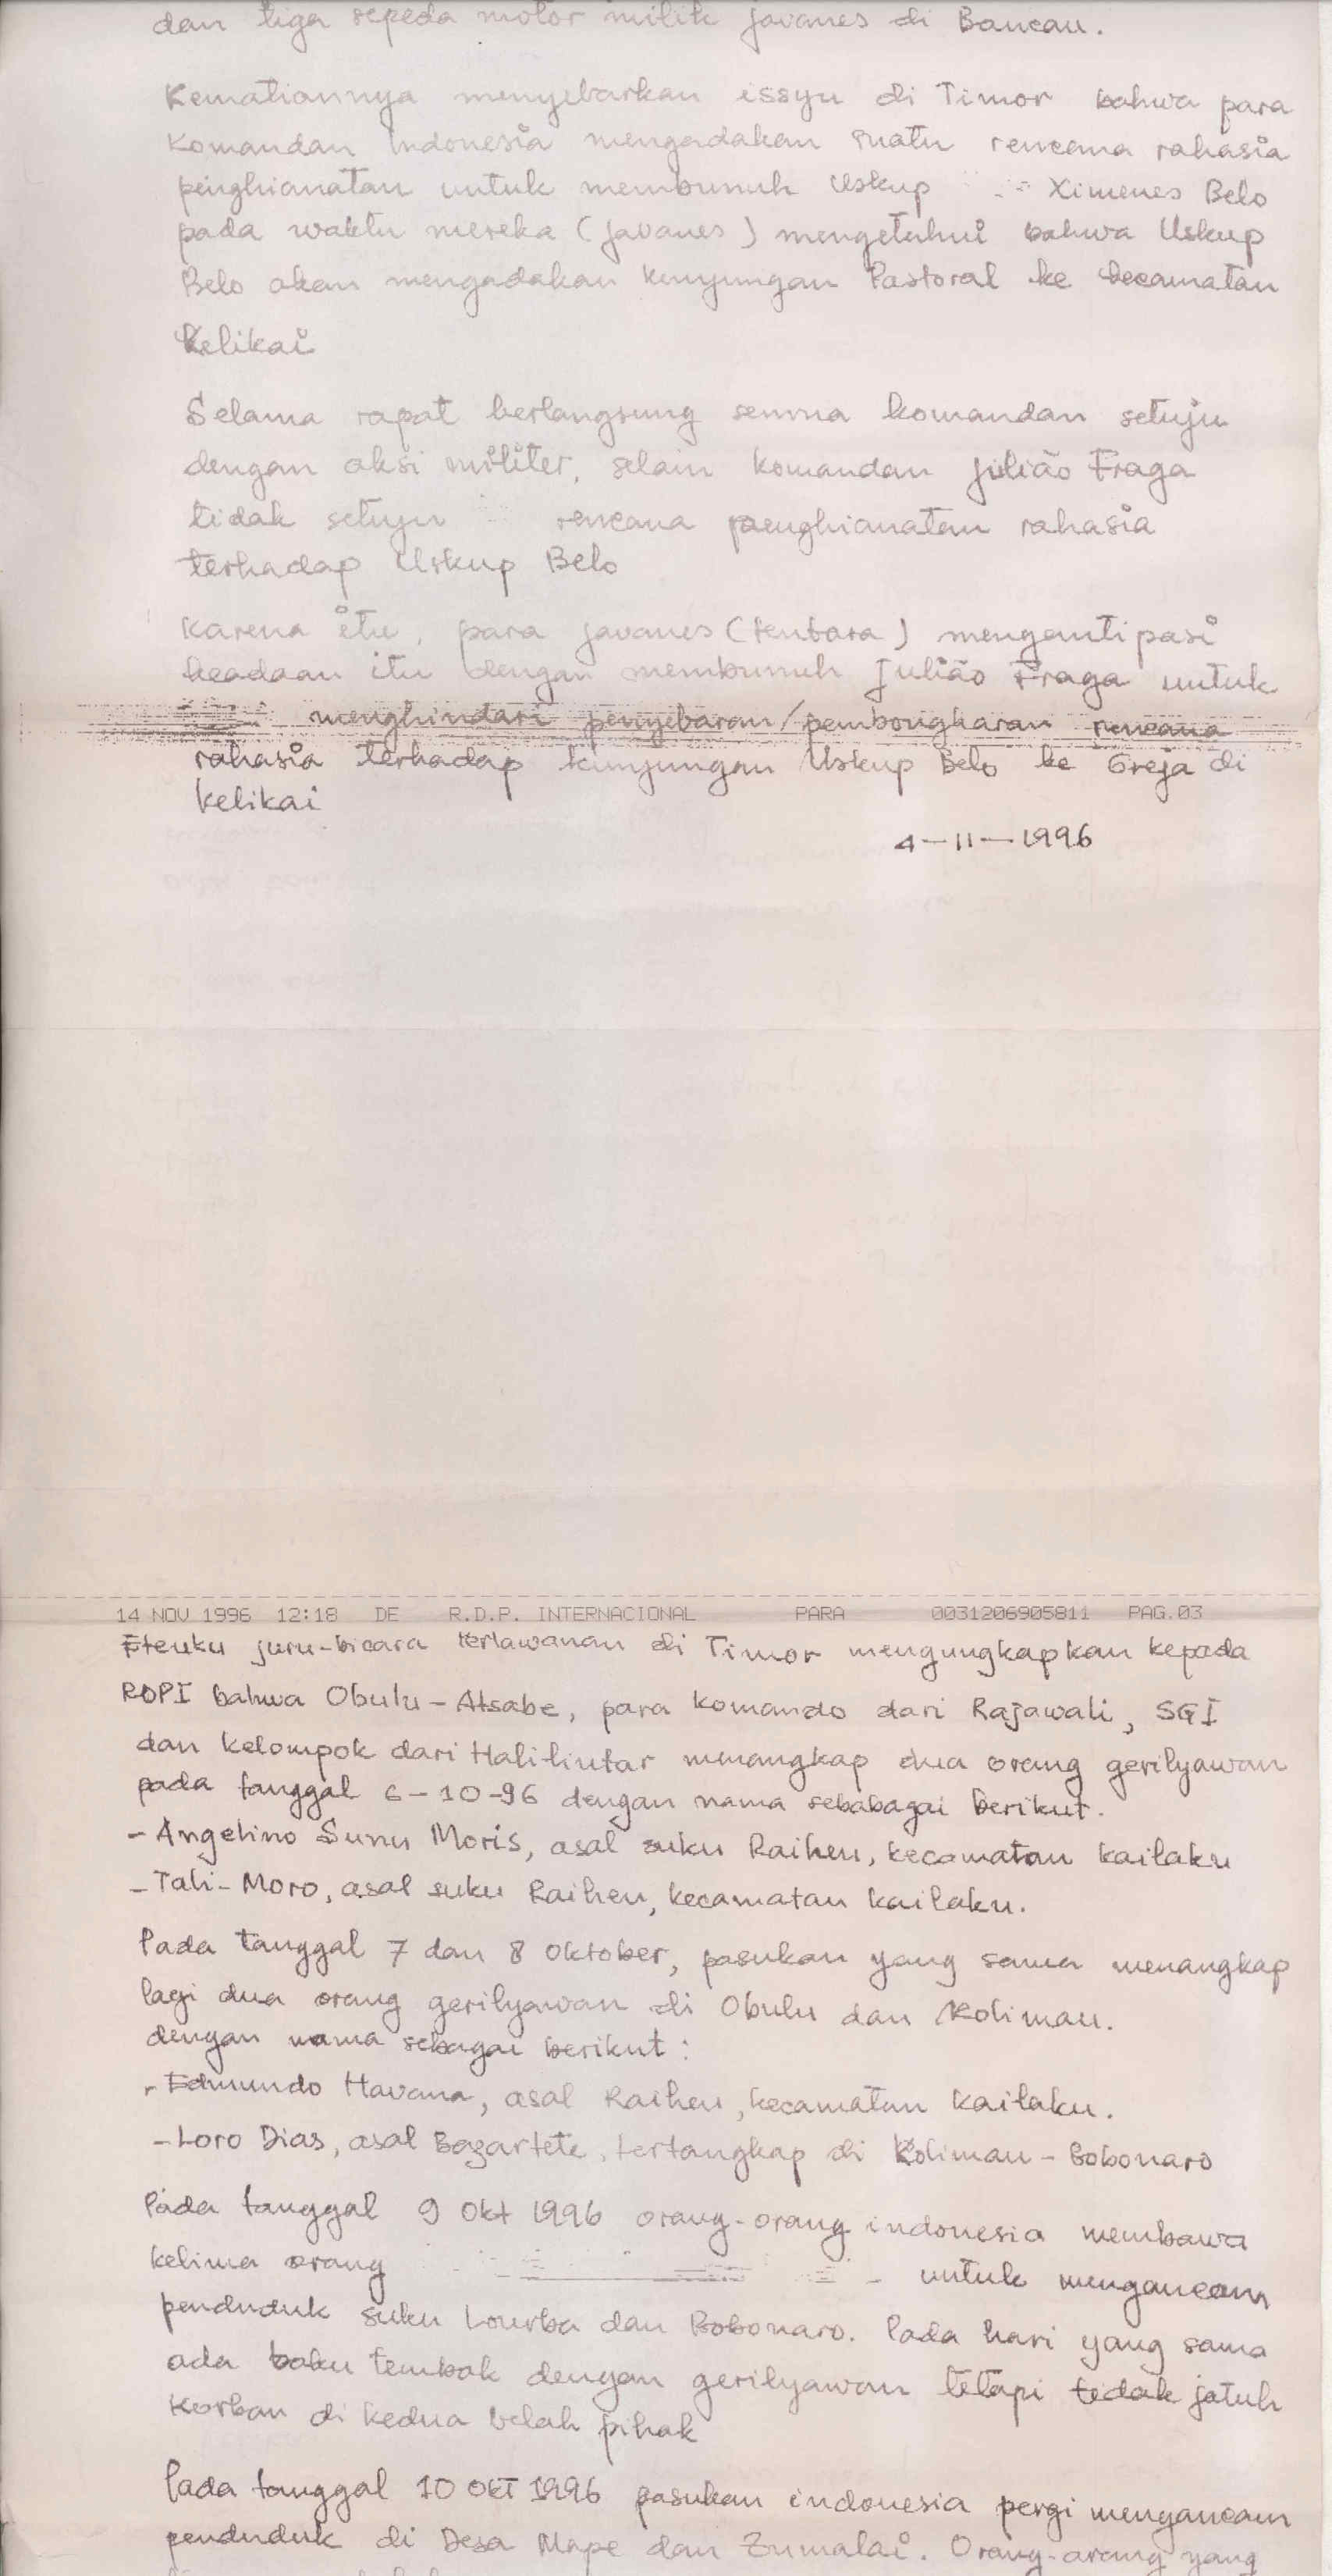 dan tiga sepeda motor milik javanes di Baucau.
Kematiannya menyebarkan issyu di Timor bahwa para
Komandan Indonesia mengadakan suatu rencana rahasia
penghianatan untuk membunuh Uskup Ximenes Belo
pada waktu mereka (javanes) mengetahui bahwa Uskup
Belo akan mengadakan kunjungan Pastoral ke kecamatan
Kelikai
Selama rapat berlangsung semua komandan setuju
dengan aksi militer, selain komandan Julião Fraga
tidak setuju rencana penghianatan rahasia
terhadap Uskup Belo
Karena itu, para javanes (tentara) mengantipasi
keadaan itu dengan membunuh Julião Fraga untuk
menghindari penyebaran/pembongkaran rencana
rahasia terhadap kunjungan Uskup Belo ke Greja di
Kelikai
4-11-1996
14 NOV 1996 12:18 DE R.D.P. INTERNACIONAL PARA 0031206905811 PAG.03
juru-bicara perlawanan di Timor mengungkapkan kepada
RDPI bahwa Obulu-Atsabe, para komando dari Rajawali, SGI
dan kelompok dari Halilintar menangkap dua orang gerilyawan
pada tanggal 6-10-96 dengan nama sebabagai berikut.
- Angelino Sunu Moris, asal suku Raiheu, kecamatan kailaku
- Tali-Moro, asal suku Raiheu, kecamatan kailaku.
Pada tanggal 7 dan 8 Oktober, pasukan yang sama menangkap
lagi dua orang gerilyawan di Obulu dan Kolimau.
dengan nama sebagai berikut:
- Edmundo Havana, asal Raiheu, kecamatan kailaku.
- Loro Dias, asal Bazartete, tertangkap di Kolimau - Bobonaro
Pada tanggal 9 Okt 1996 orang-orang indonesia membawa
kelima orang untuk mengancam
penduduk suku Lourba dan Bobonaro. Pada hari yang sama
ada baku tembak dengan gerilyawan tetapi tidak jatuh
korban di kedua belah pihak
Pada tanggal 10 Okt 1996 pasukan indonesia pergi mengancam
penduduk di Desa Mape dan Zumalai. Orang-orang yang